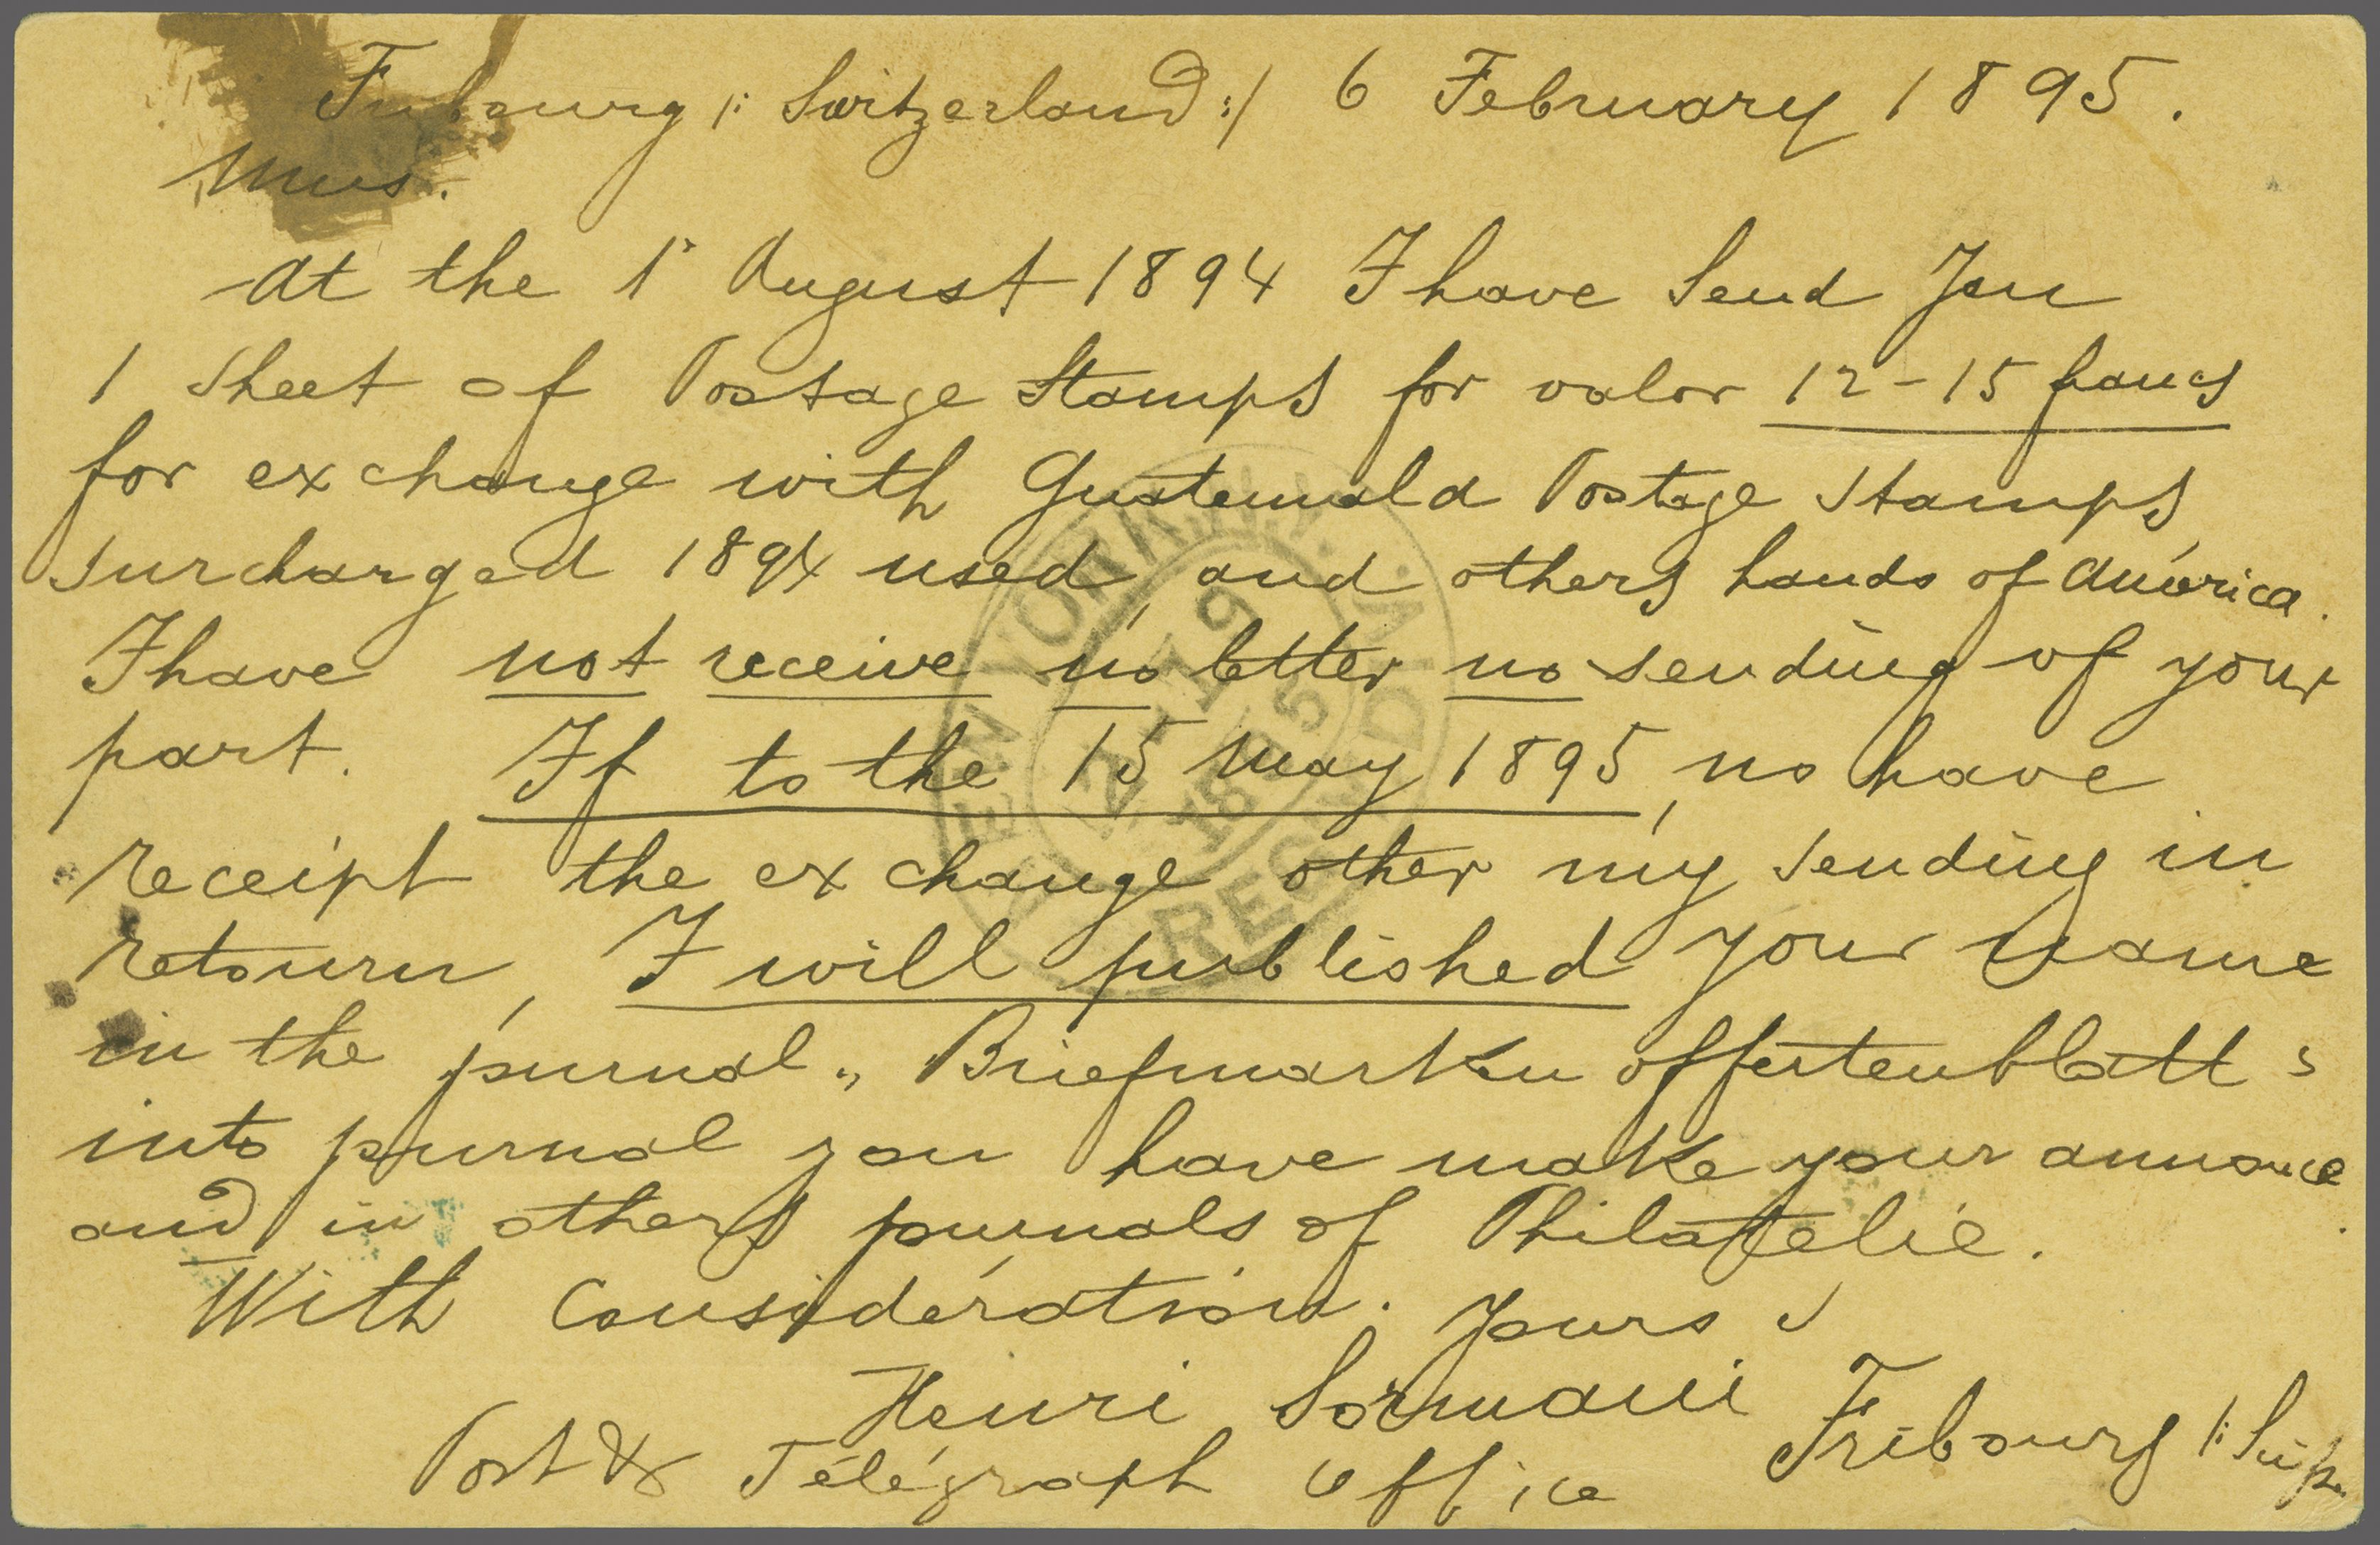 Fribourg /: Switzerland :/ 6 February 1895.
At the 1° August 1894 I have Send You
1 Sheet of Postage Stamps for valor 12-15 francs
for exchange with Guatemala Postage Stamps
surcharged 1894 used, and others hands of América.
I have not receive no letter no sending of your
part. If to the 15 May 1895, no have
receipt the exchange other my sending in
retourn, I will published your name
in the journal „ Briefmarken offertenblatt "
into journal you have make your annonce
and in others journals of Philatelie.
With Considération. Yours
Henri Sormani Fribourg /: Suisse
Post & Télégraph Office
NEW YORK, N.Y.
2-19
1895
REG'D